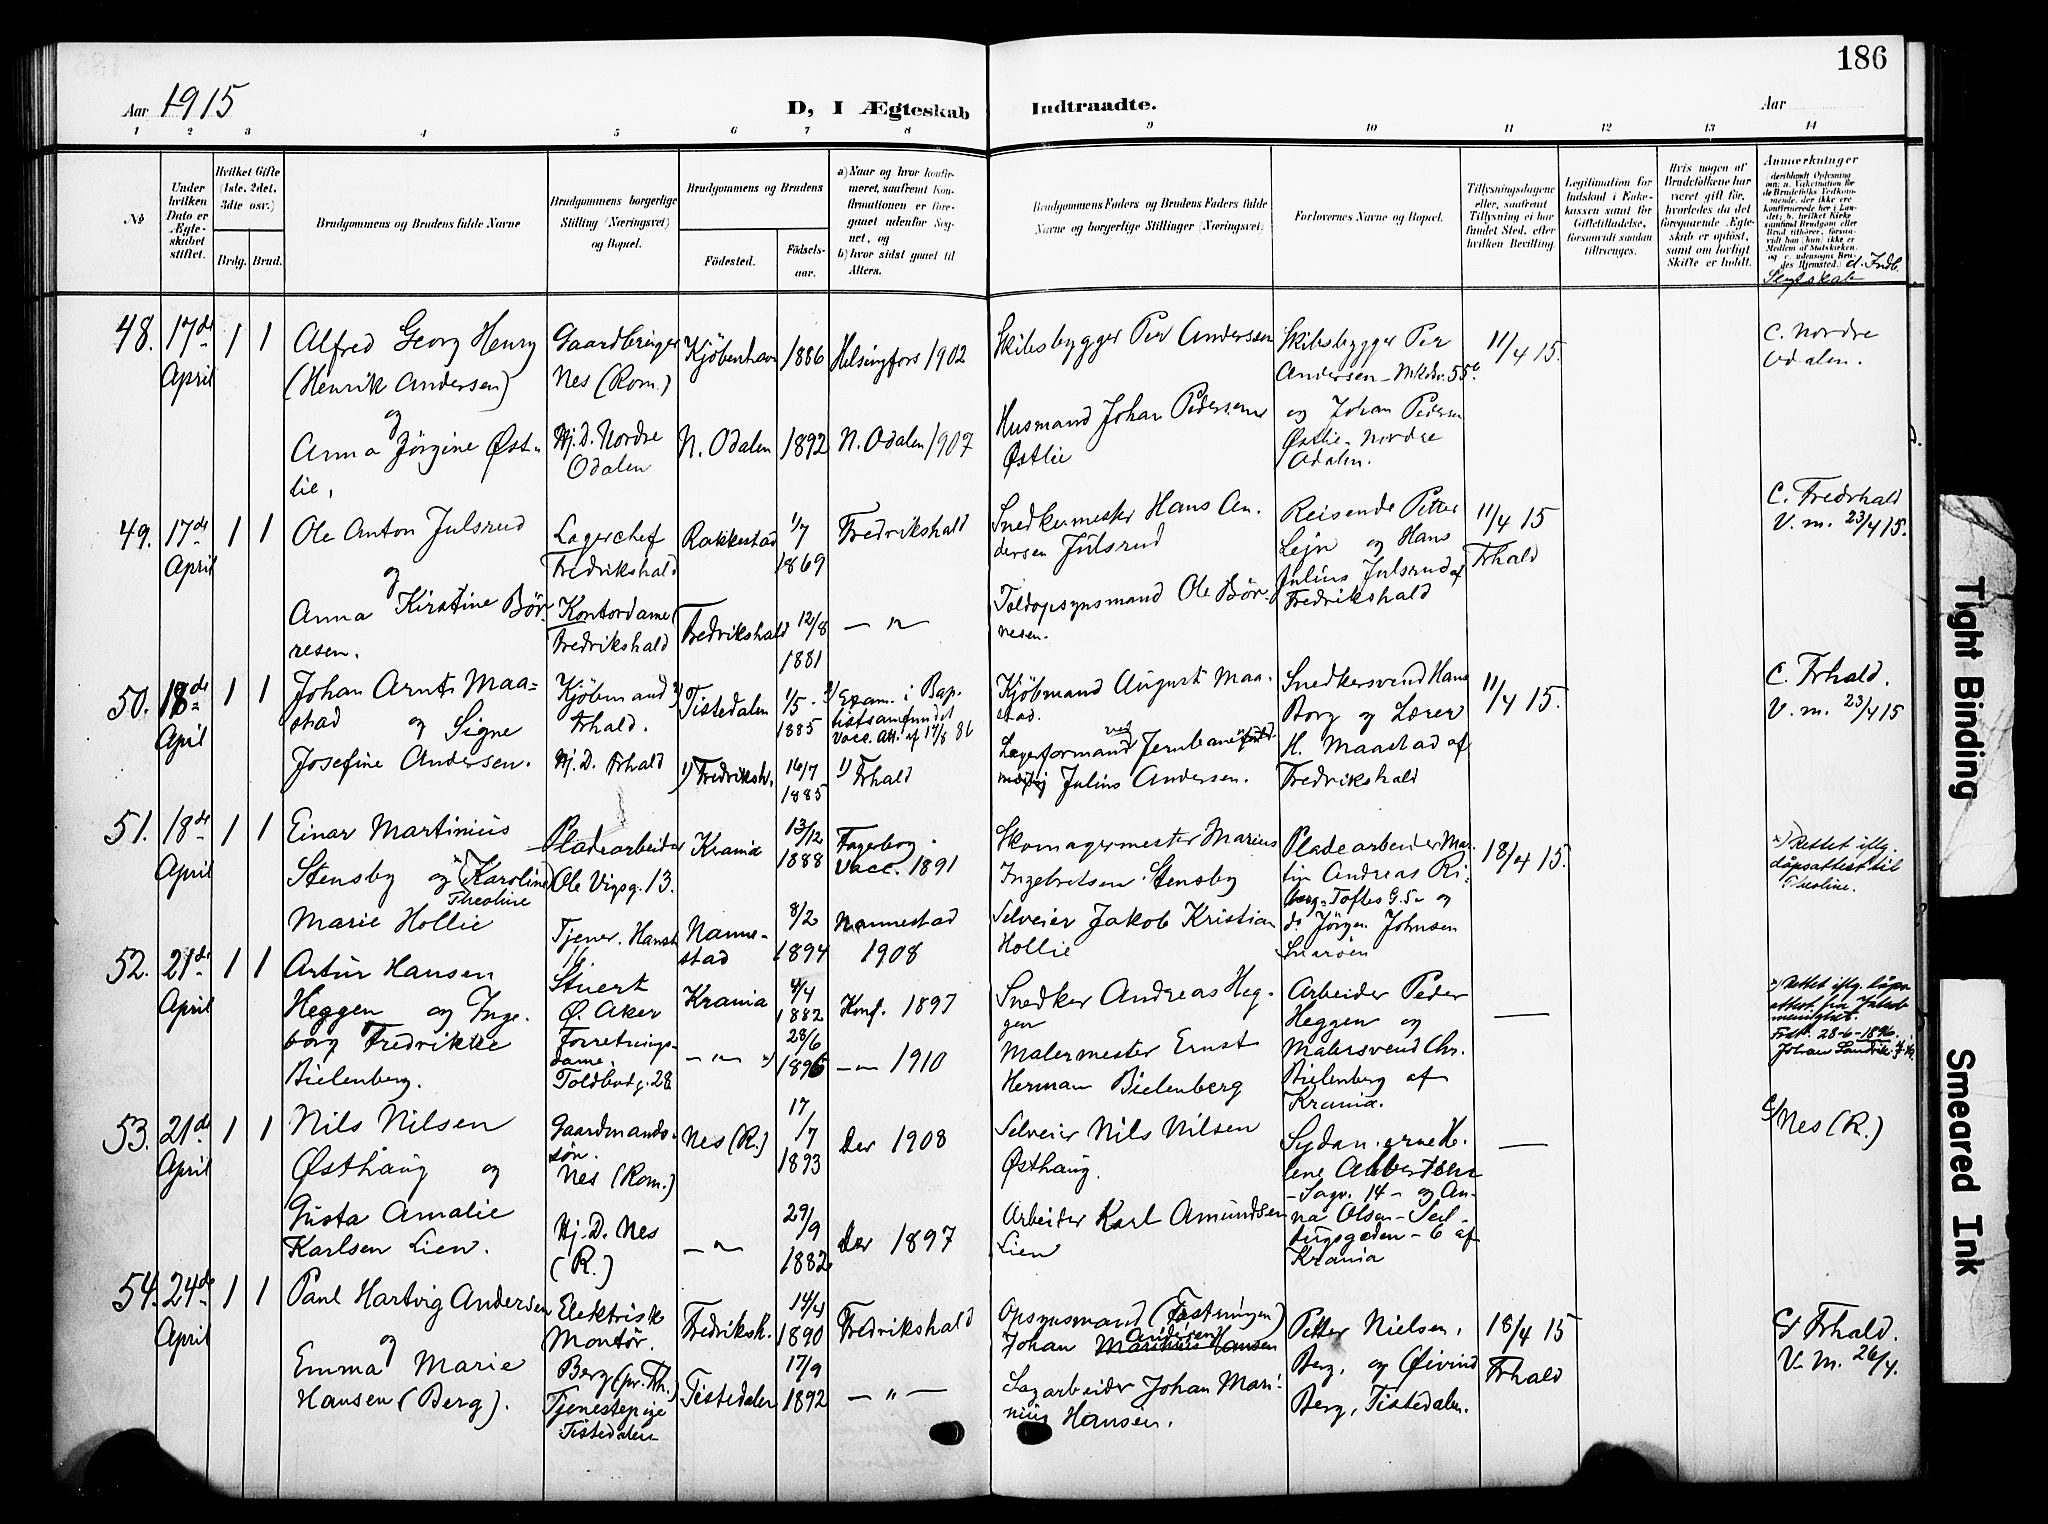 186
Aar 1915
D, I Ægteskab Indtraadte.
Aar
1 2 3 4 5 6 7 8 9 10 11 12 13 14
No
Under hvilken Dato er Ægteskabet stiftet.
Hvilket Gifte (1ste, 2det, 3die osv.)
Brdg. Brud.
Brudgommens og Brudens fulde Navne
Brudgommens borgerlige Stilling (Næringsvei) og Bopæl.
Brudgommens og Brudens
Födested.
Födsels-aar.
a) Naar og hvor konfirmeret, saafremt Konfirmationen er foregaaet udenfor Sognet, og
b) hvor sidst gaaet til Alters.
Brudgommens Faders og Brudens Faders fulde Navne og borgerlige Stillinger (Næringsvei)
Forlovernes Navne og Bopæl.
Tillysningsdagene eller, saafremt Tillysning ei har fundet Sted, efter hvilken Bevilling
Legitimation for Indskud i Enkekassen samt for Giftetilladelse, forsaavidt saadan tiltrænges.
Hvis nogen af Brudefolkene har været gift før, hvorledes da det foregaaende Ægteskab er opløst, samt om lovligt Skifte er holdt.
Anmerkninger
48. 17de April 1 1
Alfred Georg Henry
(Henrik Andersen)
og
Anna Jörgine Øst-
lie,
Nes (Rom.)
Hj. D. Nordre
Odalen
Kjöbenhavn 1886 Helsingfors 1902
N. Odalen 1892 N. Odalen 1907
Skibsbygger Per Andersen
Husmand Johan Pedersen
Østlie
Skibsbygger Per
Andersen
og Johan Peders
Østlie - Nordre
Odalen.
11/4 15.
C. Nordre
Odalen.
49. 17de April 1 1
Ole Anton Julsrud
og
Anna Kirstine Bör-
resen.
Lagerchef
Fredrikshald
Kontordame
Fredrikshald
Rakkestad 1/7 1869 Fredrikshald
Fredrikshald 12/8 1881 — " —
Snedkermester Hans An-
dersen Julsrud
Toldopsynsmand Ole Bör-
resen.
Reisende Petter
Lejn og Hans
Julius Julsrud af
Fredrikshald
11/4 15
Frhald
C. Fredrhald
V. m. 23/4 15.
50. 18de April 1 1
Johan Arnt Maa-
stad og Signe
Josefine Andersen.
Kjöbmand
Frhald.
Hj. D. Frhald
Tistedalen 1/5 1885 Exam. i Bap-
tistsamfundet
Vacc. Att. af 17/8 86
1) Fredriksh. 16/7 1885 1) Frhald
Kjöbmand August Maa-
stad.
Lagerformand ved Jernbane
Julius Andersen.
Snedkersvend Hans
Borg og Lærer
H. Maastad af
Fredrikshald
11/4 15.
C. Frhald.
V. m. 23/4 15
51. 18de April 1 1
Einar Martinius
Stensby og (Karoline)
Theoline
Marie Hollie
Pladearbeider
Ole Vigsg. 13.
Tjener. Hanst.
16.
Krania 13/12 1888 Fagerborg.
Vacc. 1891
Nanne-
stad 8/2 1894 Nannestad
1908
Skomagermester Marius
Ingebretsen Stensby
Selveier Jakob Kristian
Hollie
Pladearbeider Mar-
tin Andreas Ri-
berg - Toftes G. 5 - og
do Jörgen Johnsen
Snaröen
18/4 15.
x) Rettet iflg.
dåpsattest til
Theoline.
52. 21de April 1 1
Artur Hansen
Heggen og Inge-
borg Fredrikke
Bielenberg.
Stuert
Ø. Aker
Forretnings-
dame.
Toldbodg. 28
Krania 4/4 1882 Konf. 1897
— " — x) 28/6 1896 — " — 1910
Snedker Andreas Heg-
gen
Malermester Ernst
Herman Bielenberg
Arbeider Peder
Heggen og
Malersvend Chr.
Bielenberg af
Krania.
—
x) Rettet iflg. dåps-
attest fra Jakob
menighet.
Født 28-6-1896.
53. 21de April 1 1
Nils Nilsen
Østhaug og
Gusta Amalie
Karlsen Lien.
Gaardmands-
sön.
Nes (Rom.)
Hj. D. Nes
(R.)
Nes (R.) 17/7 1893 Der 1908
— " — 29/9 1882 Der 1897
Selveier Nils Nilsen
Østhaug.
Arbeider Karl Amundsen
Lien
- Sagv. 14 - og An-
na Olsen - Seil-
dugsgaden - 6 af
Krania
—
C/ Nes (R.)
54. 24de April 1 1
Paul Hartvig Andersen
og
Emma Marie
Hansen (Berg).
Elektrisk
Montör.
Berg (pr. Fh.)
Tjenestepige
Tistedalen
Fredriksh. 14/4 1890 Fredrikshald
Tistedalen 17/9 1892 — " —
Opsynsmand (Fæstningen)
Johan Andersen
Sagarbeider Johan Mari-
nius Hansen.
Petter Nielsen,
Berg, og Øivind
Berg, Tistedalen.
18/4 15
Frhald
C/ Frhald.
V. m. 26/4.
Tight Binding
Smeared Ink